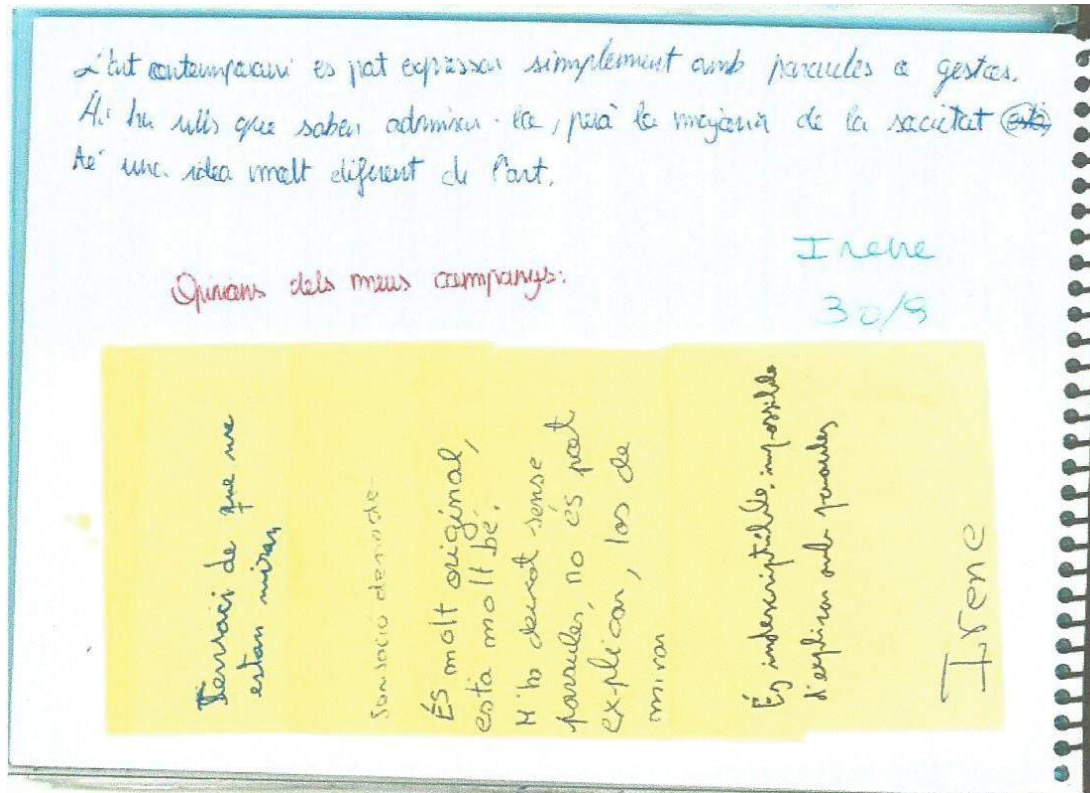 L'art contemporani es pot expressar simplement amb paraules o gestos.
Hi ha ulls que saben admirar-lo, però la majoria de la societat està
té una idea molt diferent de l'art.
Irene
30/9
Opinions dels meus companys:
Sensació de que me
estan miran
Sensació de
És molt original,
està molt bé.
M'ho deixat sense
paraules, no és pot
explicar, los de
mirar
És indescriptible, impossible
d'explicar amb paraules
Irene